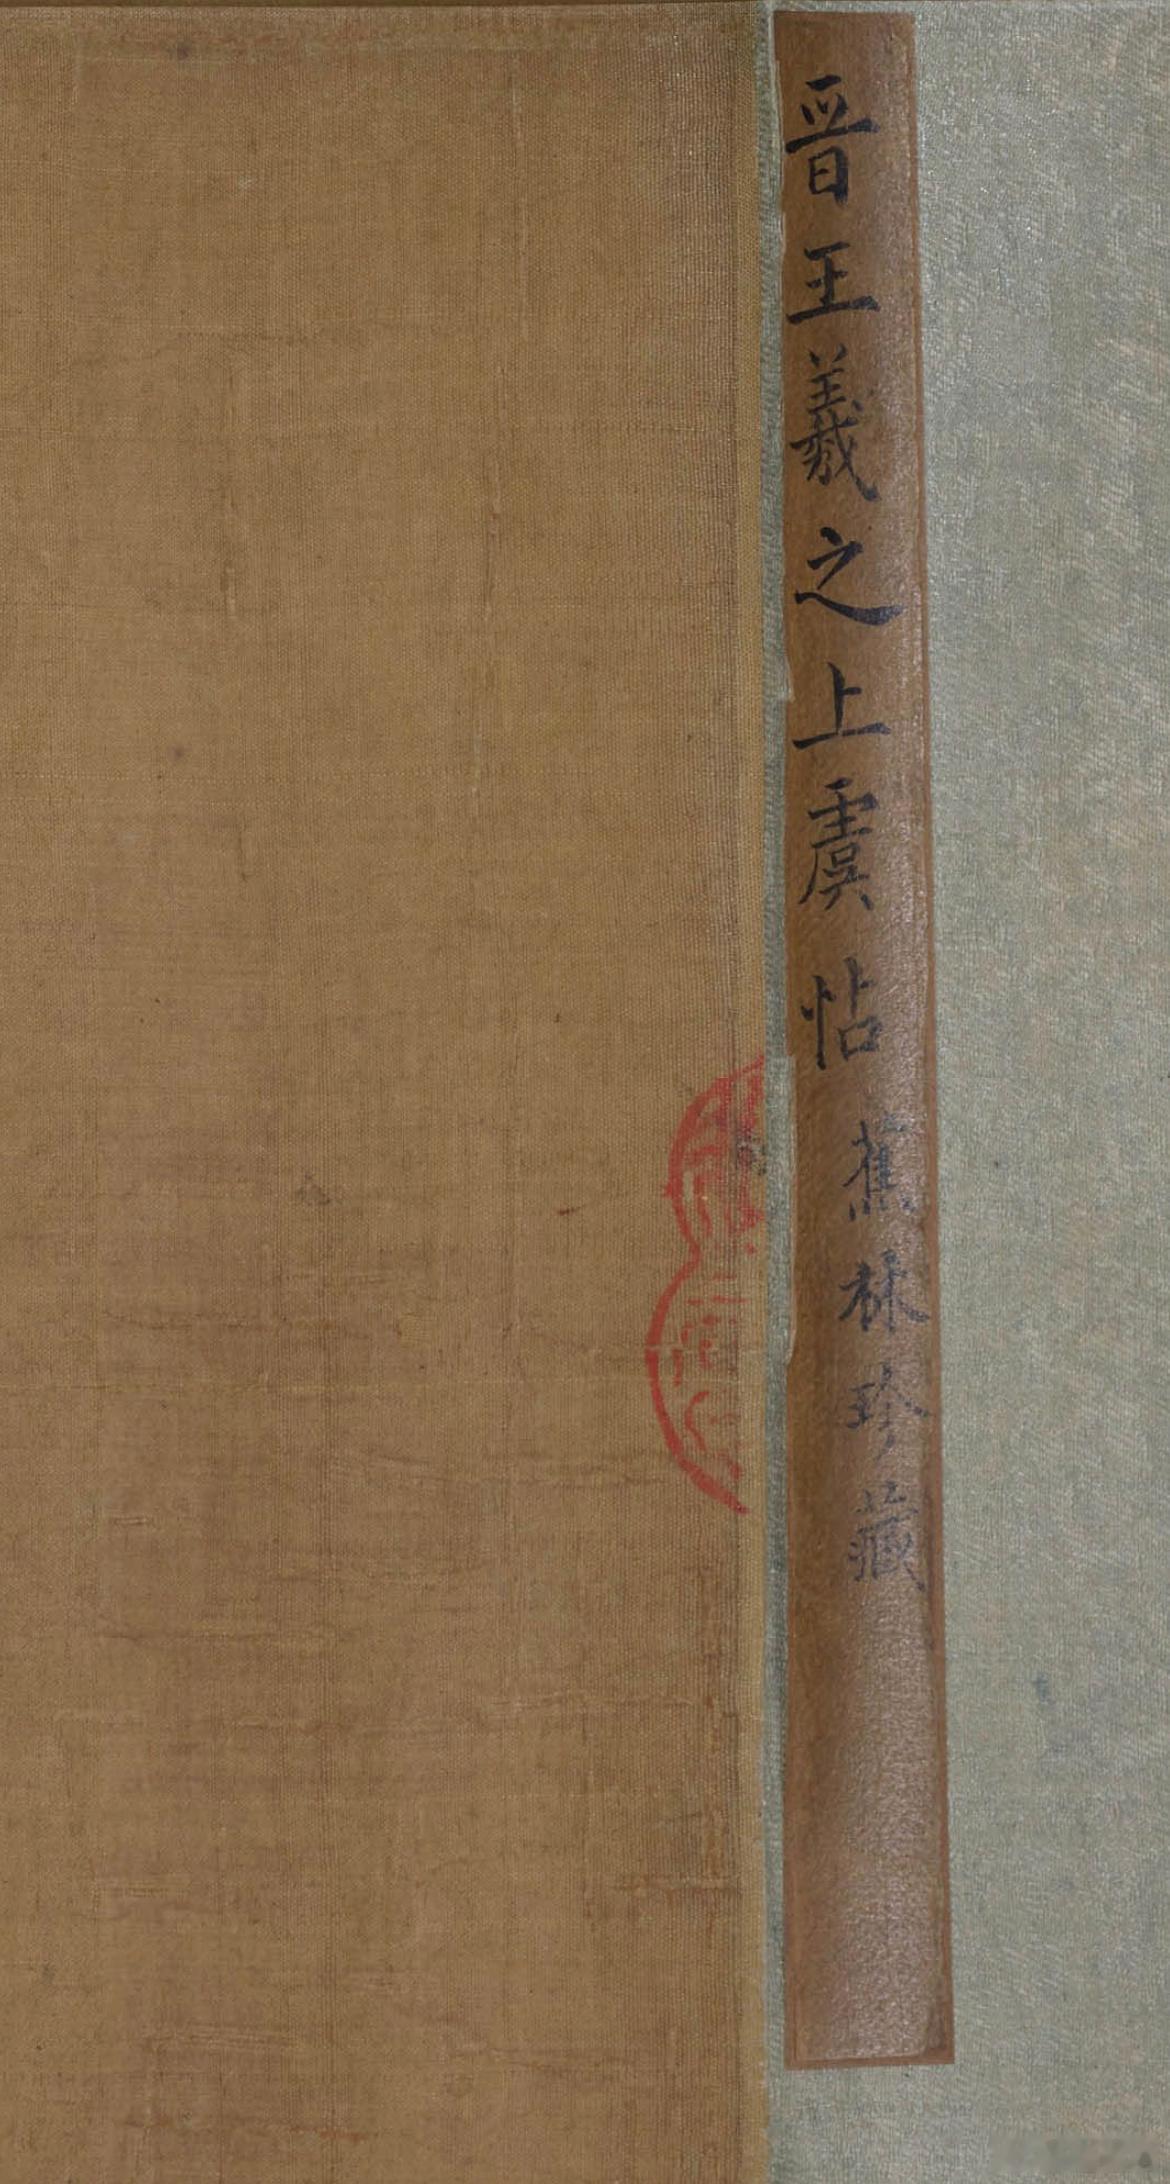 晉王羲之上虞帖
蕉林珍藏